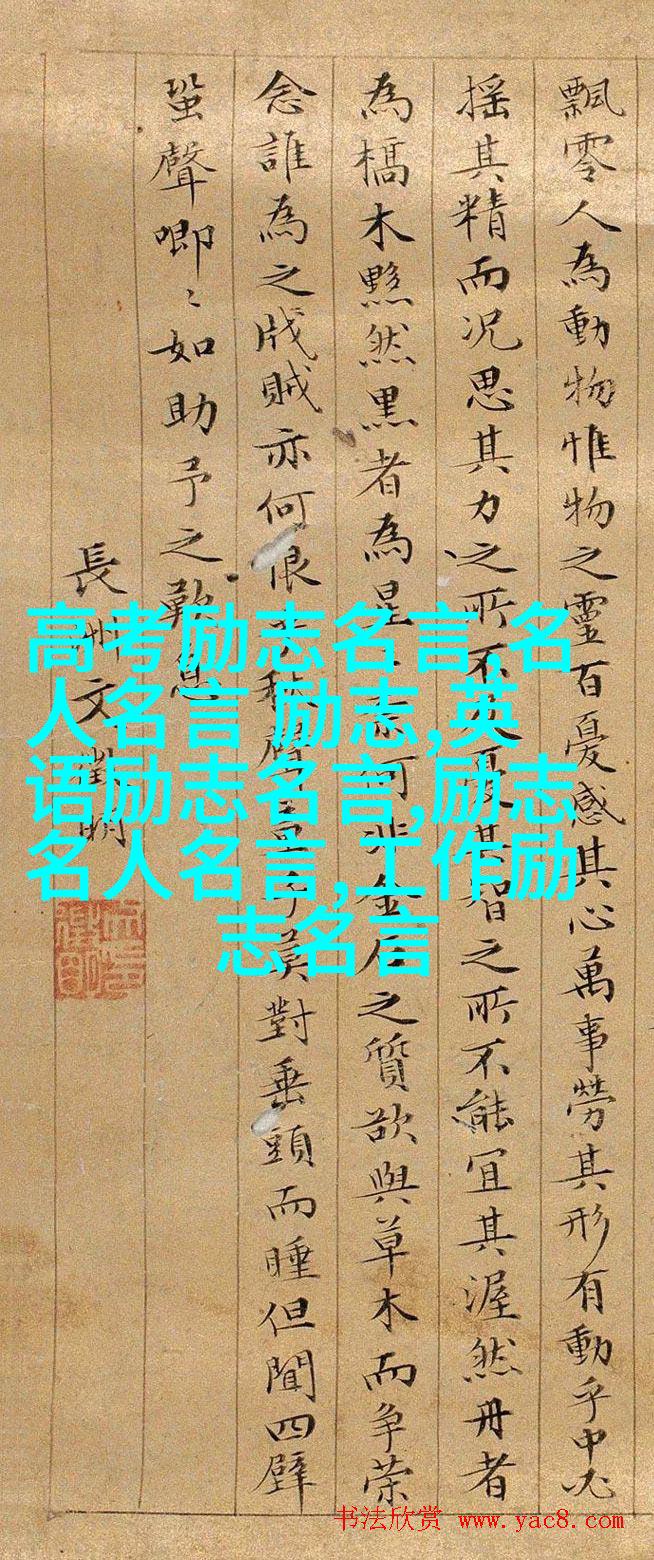 飄零人為動物惟物之靈百憂感其心萬事勞其形有動乎中必
搖其精而況思其力之所不及憂其智之所不能宜其渥然丹者
為槁木黟然黒者為星 何非金石之質欲與草木而争荣
念誰為之戕賊亦何恨乎秋聲童子莫對垂頭而睡但聞四壁
蛩聲唧〻如助予之歎息
長州文徵明
高考励志名言,名
人名言 励志,英
语励志名言,励志
名人名言,工作励
志名言
书法欣赏 www.yac8.com